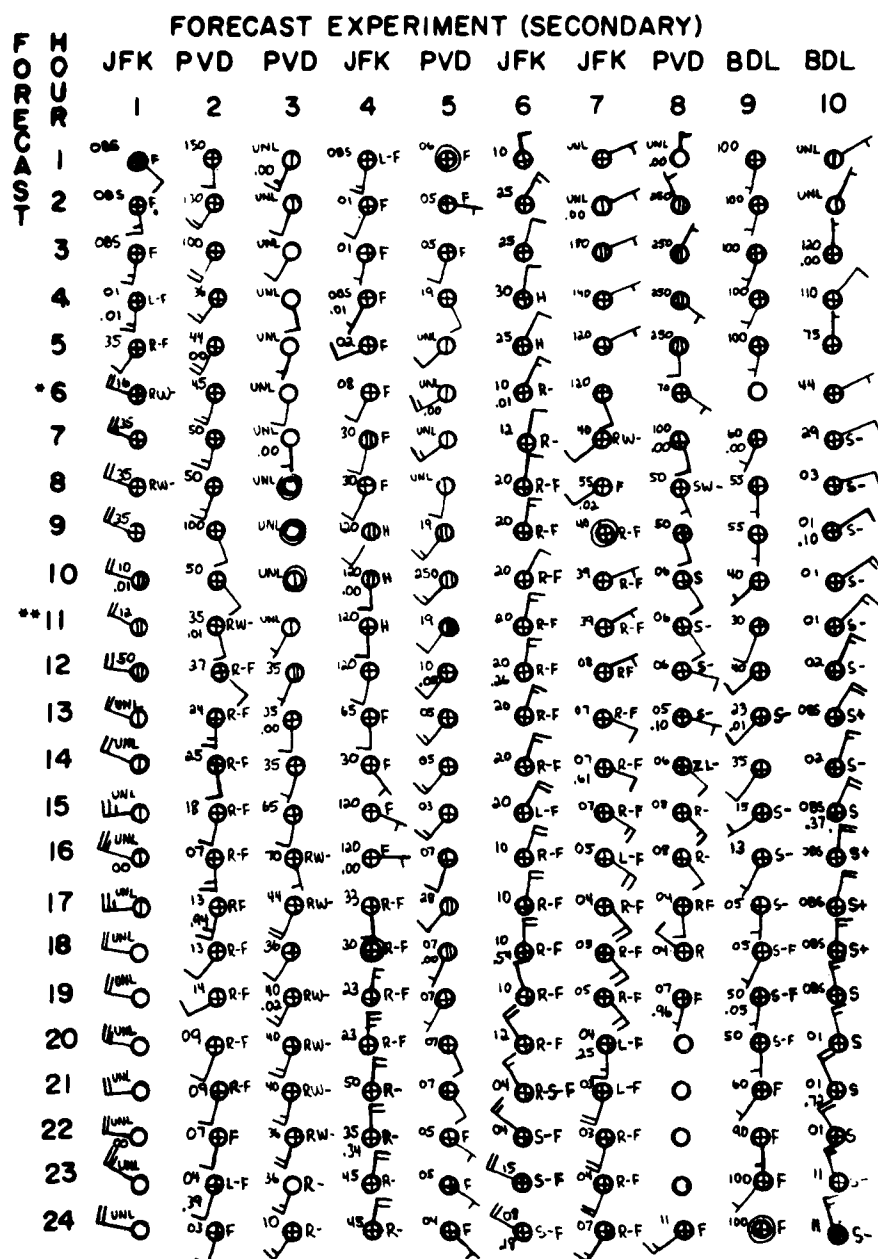 FORECAST EXPERIMENT (SECONDARY)
FORECAST HOUR
JFK PVD PVD JFK PVD JFK JFK PVD BDL BDL
1 2 3 4 5 6 7 8 9 10
1 OBS F 150 UNL OBS L-F 06 F 10 UNL UNL 100 UNL
.00 .00
2 OBS F 130 UNL 01 F 05 F 25 UNL 250 100 UNL
.00
3 OBS F 100 UNL 01 F 05 F 25 180 250 100 120
.00
4 01 L-F 36 UNL OBS F 19 30 H 140 250 100 110
.01 .01
5 35 R-F 44 UNL 02 F UNL 25 H 120 250 100 75
.00
*6 16 RW- 45 UNL 08 F UNL 10 R- 120 70 44
.00 .01
7 35 50 UNL 30 F UNL 12 R- 40 RW- 100 60 29 S-
.00 .00 .00
8 35 RW- 50 UNL 30 F UNL 20 R-F 55 F 50 SW- 55 03 S-
.02
9 35 100 UNL 120 H 19 20 R-F 40 R-F 50 55 01 S-
.10
10 10 50 UNL 120 H 250 20 R-F 39 R-F 06 S 40 01 S-
.01 .00
**11 12 35 RW- UNL 120 H 19 20 R-F 39 R-F 06 S- 30 01 S-
.01
12 50 37 R-F 35 120 10 20 R-F 08 RF 06 S- 40 02 S-
.00 .26
13 UNL 24 R-F 35 65 F 05 20 R-F 07 R-F 05 S- 23 S- OBS S+
.00 .10 .01
14 UNL 25 R-F 35 30 F 05 20 R-F 07 R-F 06 ZL- 35 02 S-
.61
15 UNL 18 R-F 65 120 F 03 20 L-F 07 R-F 08 R- 15 S- OBS S
.37
16 UNL 07 R-F 70 RW- 120 F 07 10 R-F 05 L-F 08 R- 13 S- OBS S+
00 .00
17 UNL 13 RF 44 RW- 33 R-F 28 10 R-F 04 R-F 04 RF 05 S- OBS S+
.94
18 UNL 13 R-F 36 30 R-F 07 10 R-F 03 R-F 04 R 05 S-F OBS S+
.00 .54
19 UNL 14 R-F 40 RW- 23 R-F 07 10 R-F 05 R-F 07 F 50 S-F OBS S
.02 .96 .05
20 UNL 09 R-F 40 RW- 23 R-F 07 12 R-F 04 L-F 50 S-F 01 S
25
21 UNL 09 R-F 40 RW- 50 R- 07 04 R-S-F L-F 60 F 01 S
.72
22 UNL 07 F 36 RW- 35 R- 05 F 09 S-F 03 R-F 90 F 01 S
00 .34
23 UNL 04 L-F 36 R- 45 R- 05 F 15 S-F 04 R-F 100 F 11 S-
.39
24 UNL 03 F 10 R- 45 R- 04 F 08 S-F 07 R-F 11 F 100 F 11 S-
28